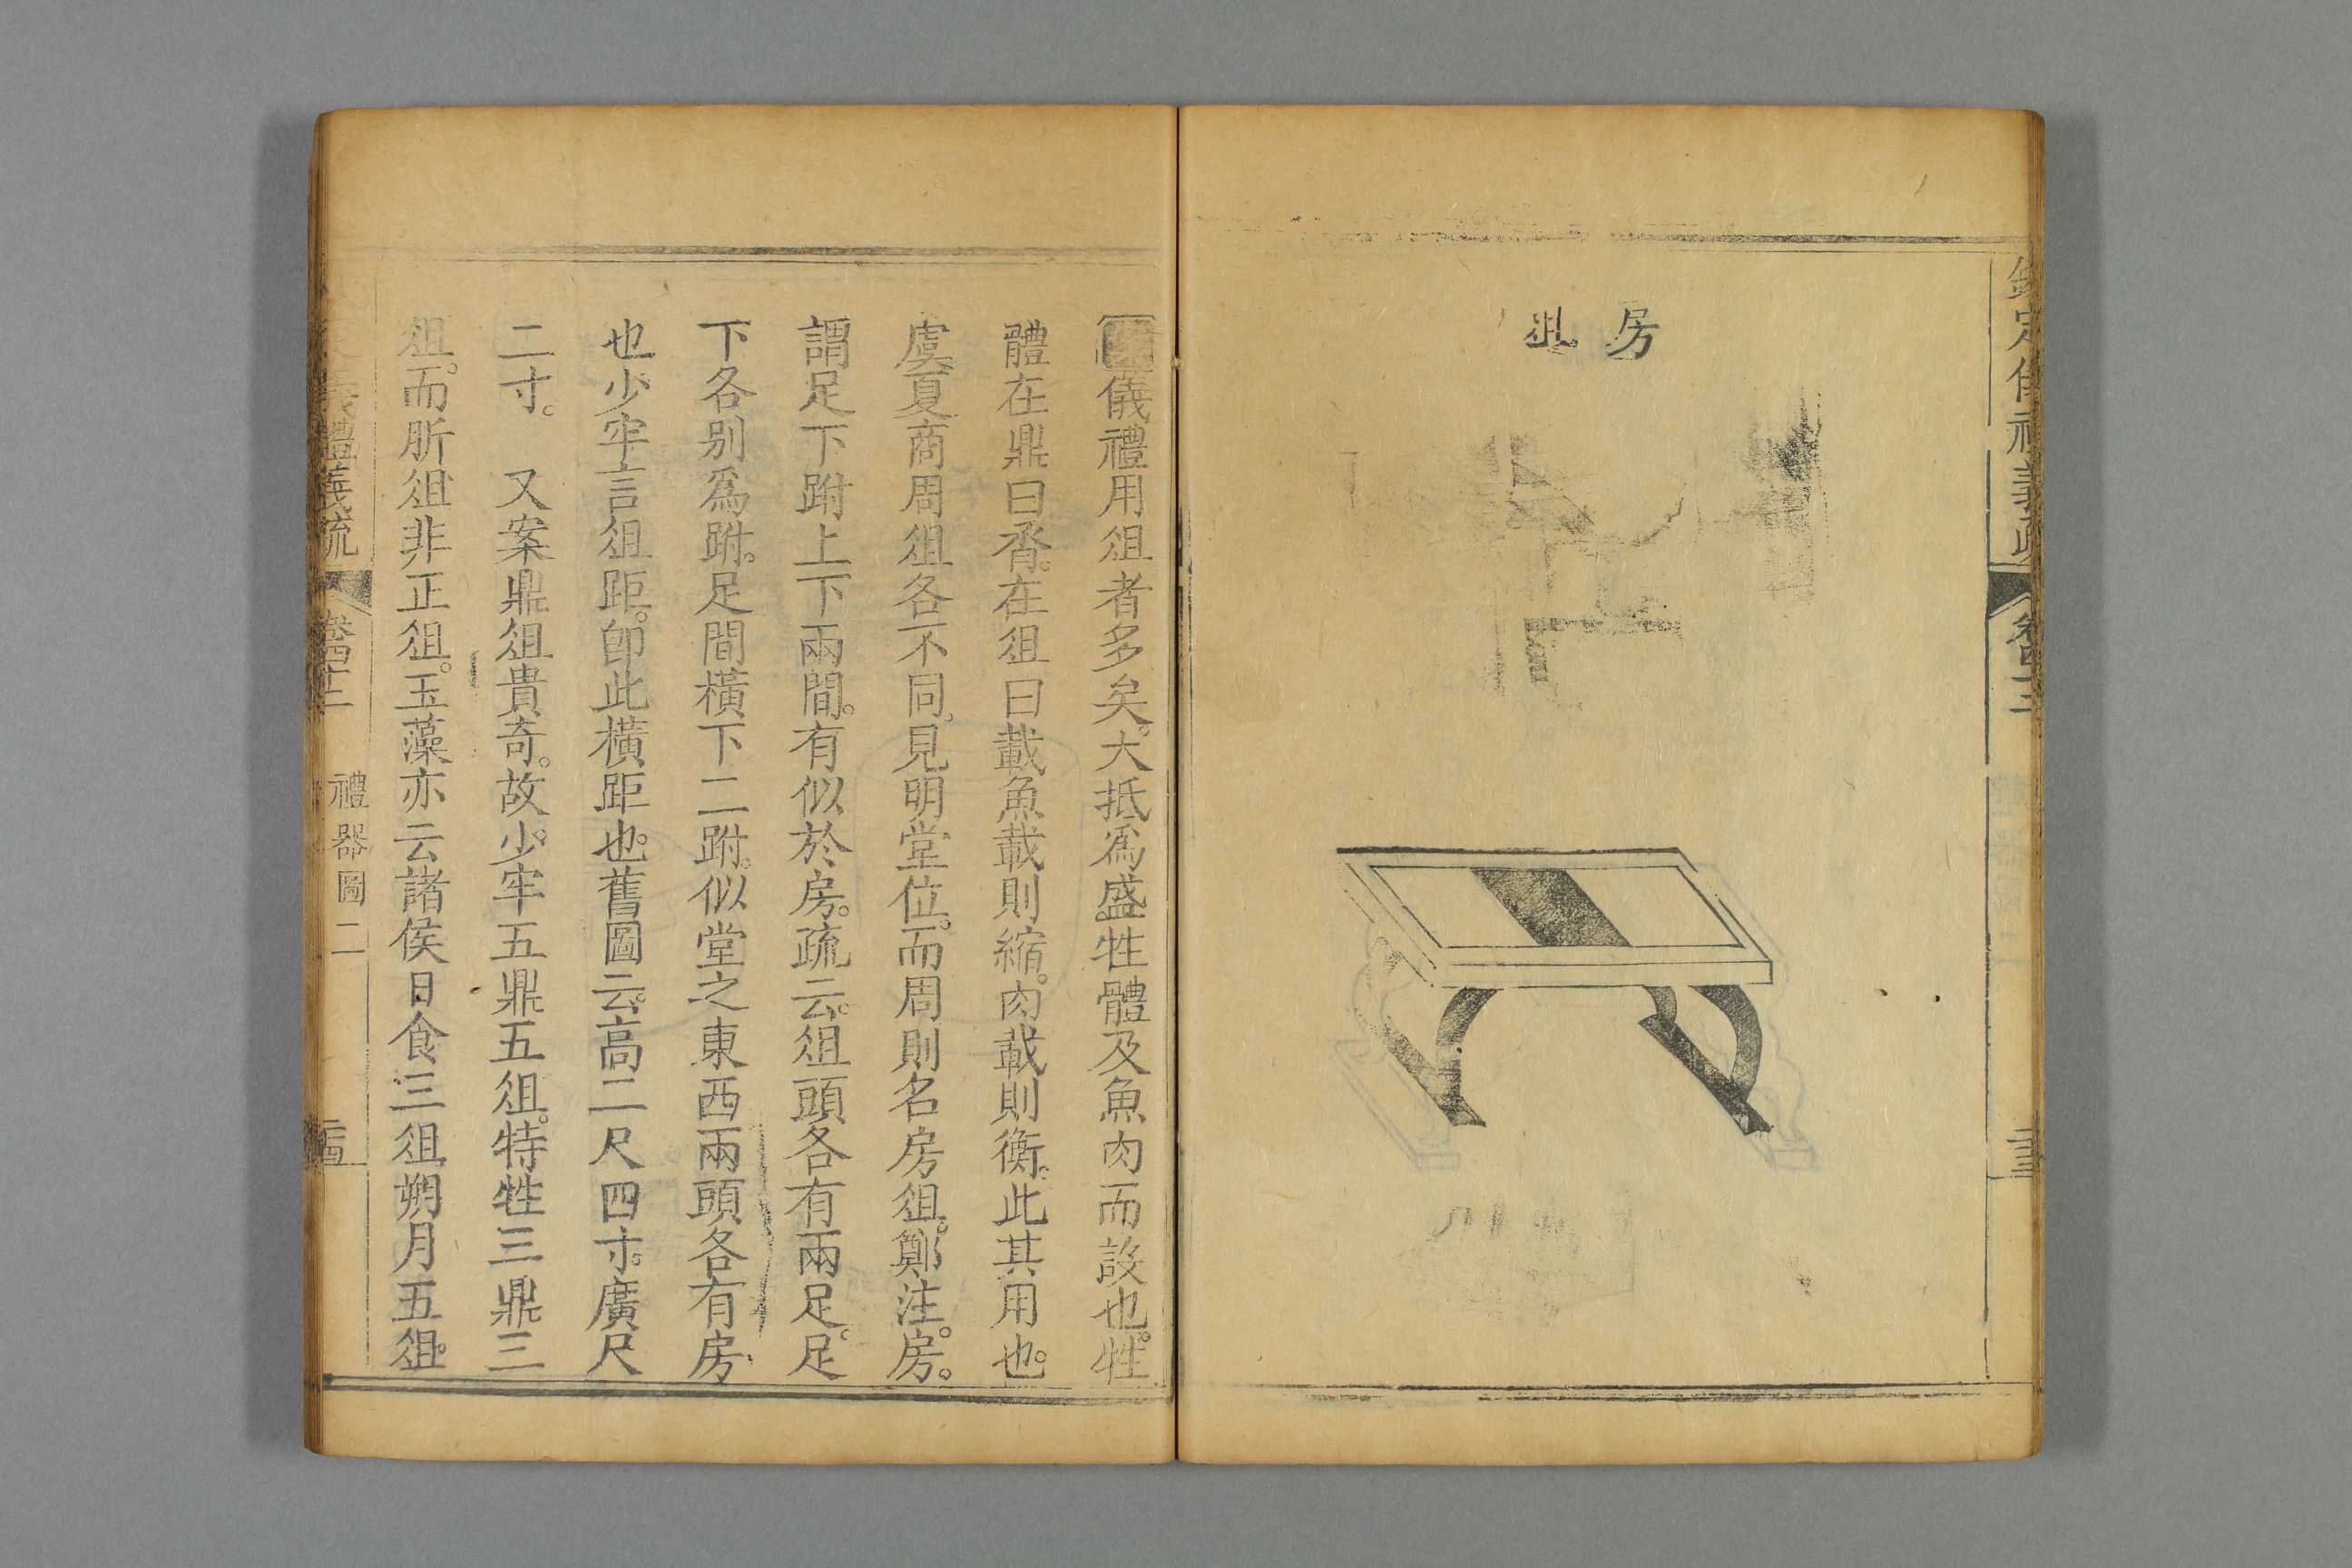 欽定儀禮義疏
卷四十二
房俎
案儀禮用俎者多矣。大抵爲盛牲體及魚肉而設也。牲
體在鼎曰脀。在俎曰載魚載則縮。肉載則衡。此其用也。
虞夏商周俎各不同。見明堂位。而周則名房俎。鄭注。房。
謂足下跗上下兩間。有似於房。疏云。俎頭各有兩足。足
下各別爲跗。足間橫下二跗。似堂之東西兩頭各有房
也。少牢言俎距。卽此橫距也。舊圖云。高二尺四寸。廣尺
二寸。 又案鼎俎貴奇。故少牢五鼎五俎。特牲三鼎三
俎。而肵俎非正俎。玉藻亦云諸侯日食三俎朔月五俎。
儀禮義疏
卷四十二
禮器圖二